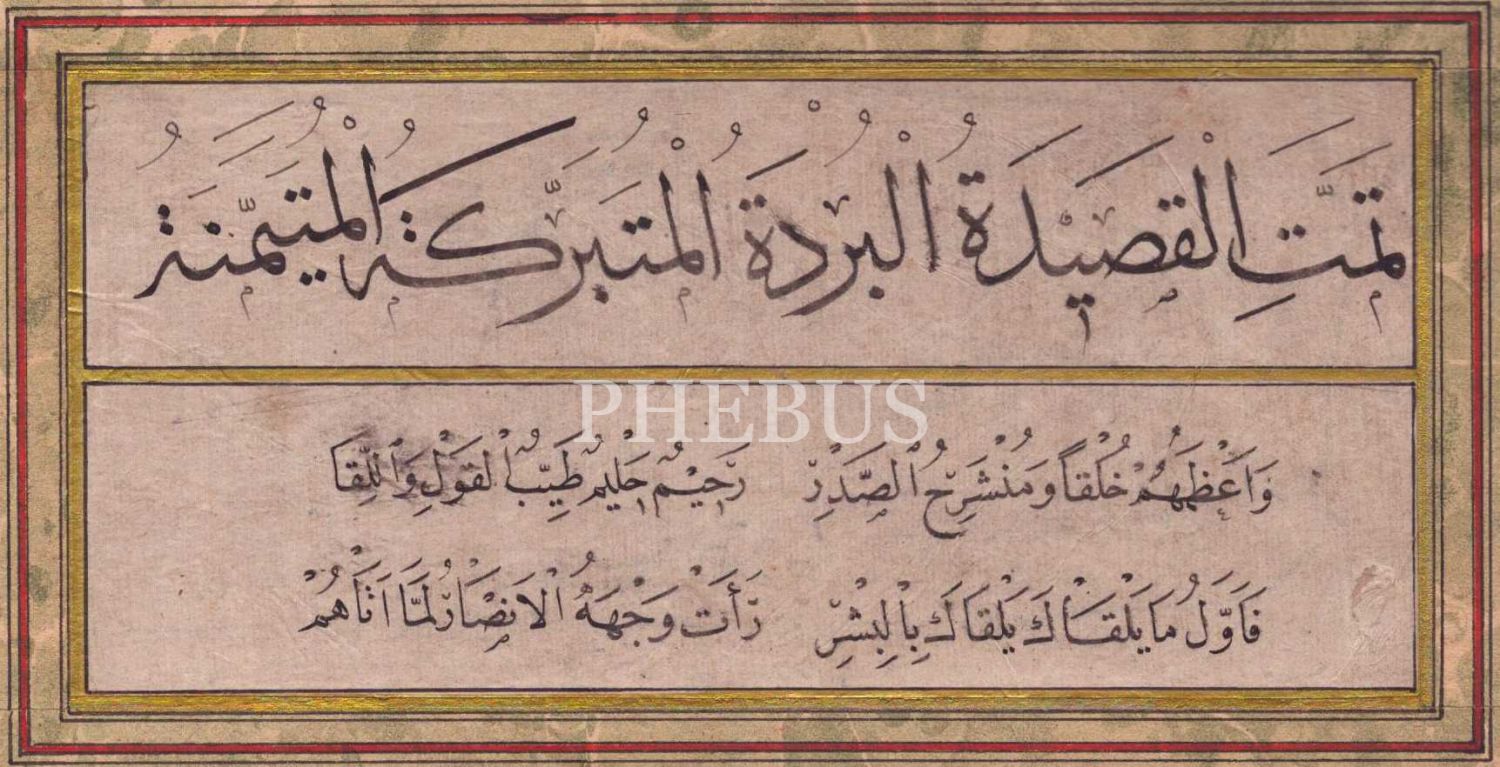 تَمَّتِ الْقَصِيدَةُ الْبُرْدَةُ الْمُتَبَرَّكَةُ الْمُتَيَمَّنَةُ
PHEBUS
وَاَعْظَمُهُمْ خُلْقاً وَمُنْشَرِحُ الصَّدْرِ رَحِيمٌ حَلِيمٌ طَيِّبُ الْقَوْلِ وَاللِّقَا
فَاَوَّلُ مَا يَلْقَاكَ يَلْقَاكَ بِالْبِشْرِ رَأَتْ وَجْهَهُ الْاَنْصَارُ لَمَّا اَتَاهُمْ